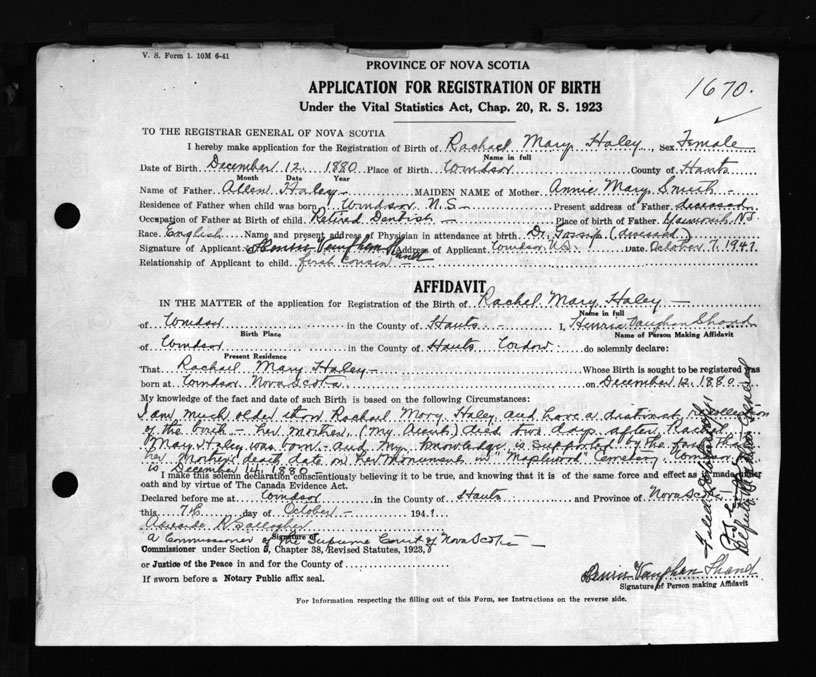 V. S. Form 1. 10M 6-41
PROVINCE OF NOVA SCOTIA
APPLICATION FOR REGISTRATION OF BIRTH
Under the Vital Statistics Act, Chap. 20, R. S. 1923
1670.
TO THE REGISTRAR GENERAL OF NOVA SCOTIA
I hereby make application for the Registration of Birth of Rachael Mary Haley Sex Female
Name in full
Date of Birth December 12. 1880 Place of Birth Windsor County of Hants
Month Date Year
Name of Father Allen Haley MAIDEN NAME of Mother Annie Mary Smith
Residence of Father when child was born Windsor N.S. Present address of Father deceased
Occupation of Father at Birth of child Retired Dentist Place of birth of Father Yarmouth, N.S.
Race English Name and present address of Physician in attendance at birth Dr. Gossip (deceased.)
Signature of Applicant Vaughan Shand Address of Applicant Windsor N.S. Date October 7, 1941
Relationship of Applicant to child first cousin
AFFIDAVIT
IN THE MATTER of the application for Registration of the Birth of Rachel Mary Haley
Name in full
of Windsor in the County of Hants I, Vaughan Shand
Birth Place Name of Person Making Affidavit
of Windsor in the County of Hants do solemnly declare:
Present Residence
That Rachael Mary Haley Whose Birth is sought to be registered was
born at Windsor Nova Scotia on December 12, 1880
My knowledge of the fact and date of such Birth is based on the following Circumstances:
I am much older than Rachael Mary Haley and have a distinct recollection
of the birth – her mother (my Aunt) died two days after Rachel
Mary Haley was born – and my knowledge is supported by the fact that
her mother's death date on her monument in "Maplewood" Cemetery Windsor
is December 14, 1880
I make this solemn declaration conscientiously believing it to be true, and knowing that it is of the same force and effect as if made under
oath and by virtue of The Canada Evidence Act.
Declared before me at Windsor in the County of Hants and Province of Nova Scotia
this 7th day of October 1941
Gallagher
Signature of
a Commissioner of the Supreme Court of Nova Scotia
Commissioner under Section 5, Chapter 38, Revised Statutes, 1923,
or Justice of the Peace in and for the County of
If sworn before a Notary Public affix seal.
Vaughan Shand
Signature of Person making Affidavit
For Information respecting the filling out of this Form, see Instructions on the reverse side.
Filed October
Deputy Registrar General